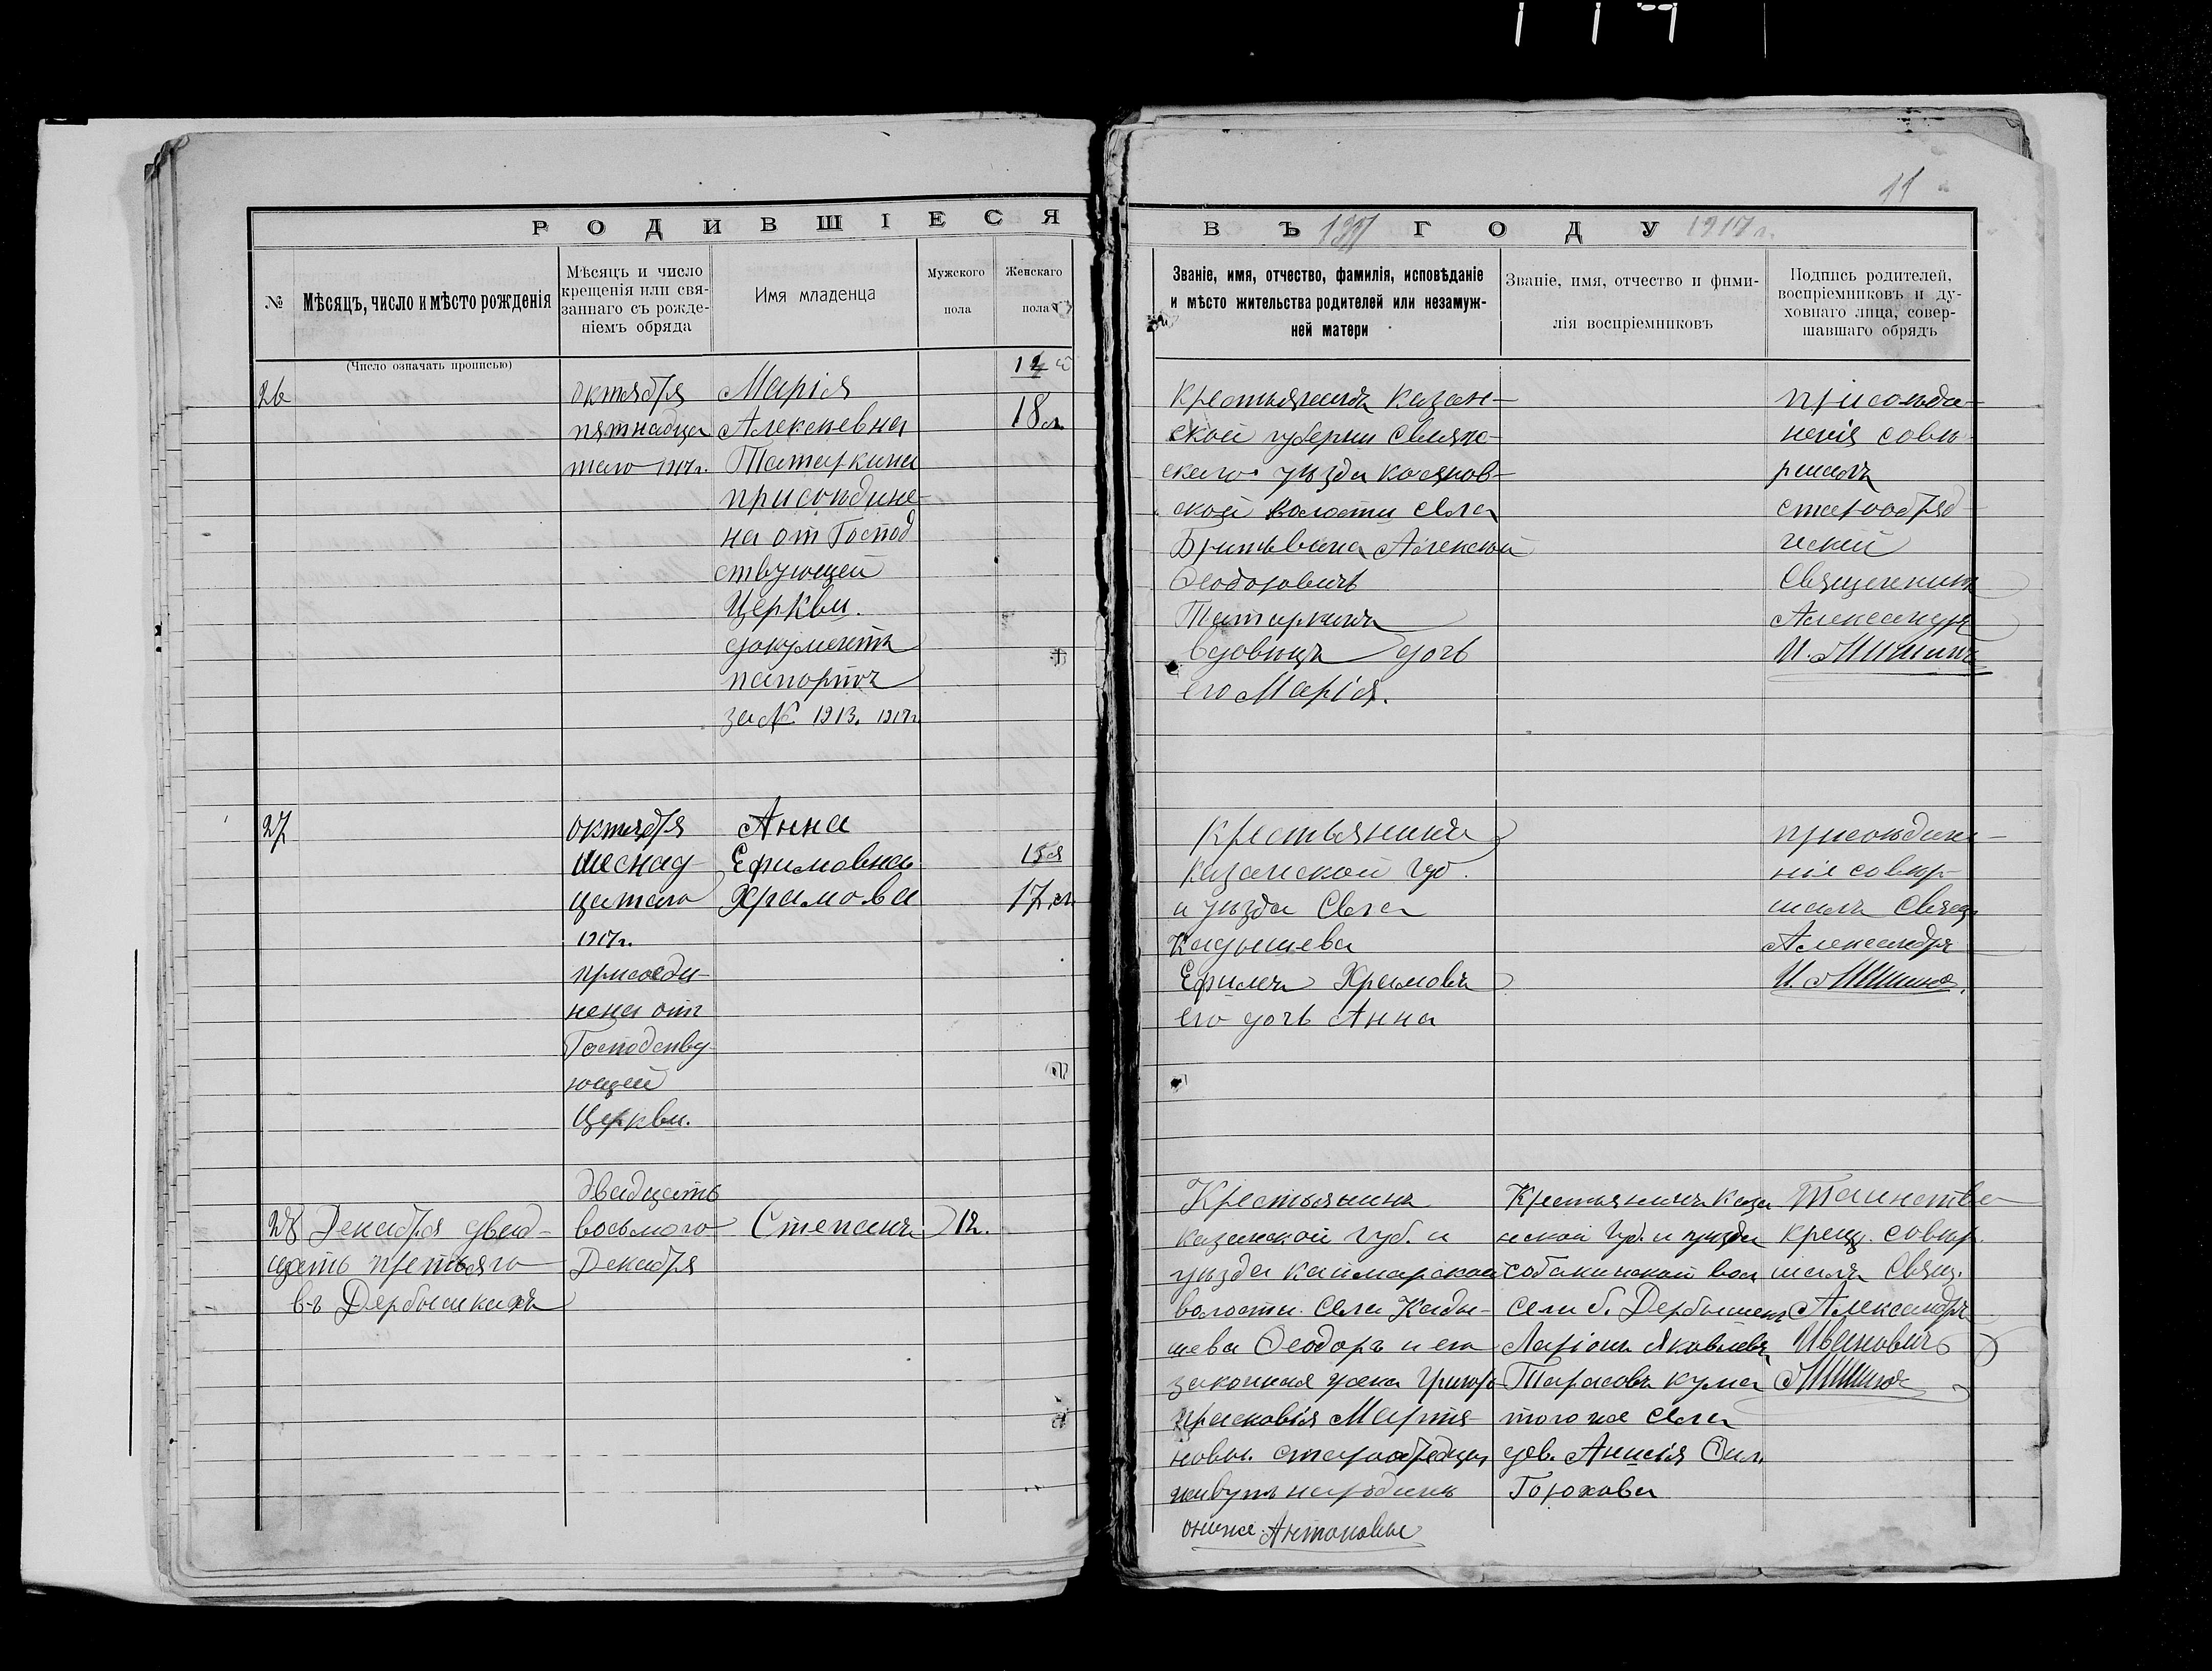 11
РОДИВШІЕСЯ
ВЪ 1917 ГОДУ 1917 г.
№
Мѣсяцъ, число и мѣсто рожденія
Мѣсяцъ и число крещенія или свя-
заннаго съ рожде-
ніемъ обряда
Имя младенца
Мужского
пола
Женскаго
пола
Званіе, имя, отчество, фамилія, исповѣданіе
и мѣсто жительства родителей или незамуж-
ней матери
Званіе, имя, отчество и фими-
лія воспріемниковъ
Подпись родителей,
воспріемниковъ и ду-
ховнаго лица, совер-
шавшаго обрядъ
(Число означать прописью)
26
октября
пятнадца
таго 1917г.
Марія
Алексѣевна
Татаркина
присоедине-
на от Господ
ствующей
Церкви.
документъ
папортъ
за № 1913. 1917г.
14
18 л.
Крестьянинъ Казан-
ской губерни Свіяж-
скаго уѣзда
ской волости села
Алексѣй
Ѳеодоровичъ
Татаркинъ
вдовецъ дочь
его Марія.
присоеде-
нения совѣ-
ршалъ
старообряд-
ческий
Священникъ
Александръ
И. Шишинъ
27
октября
шеснад-
цатаго
1917г.
присоеди-
нена от
Господству-
ющей
Церкви.
Анна
Ефимовна
Храмова
15
17 л.
Крестьянина
Казанской губ.
и уѣзда Села
Кадышева
Ефимъ Храмовъ
его дочь Анна
присоедине-
ніе совер-
шалъ Свящ.
Александръ
И. Шишинъ.
28
Декабря двад-
цать третьяго
въ Дербышкахъ
Двадцать
восьмого
Декабря
Степанъ
12.
Крестьянинъ
казанской губ. и
уѣзда каймарской
волости села Кады-
шева Ѳеодоръ и его
законная жена
Прасковія Мартя-
новы. старообрядцы
живутъ
онеже. Антоновы
Крестьянинъ Каза
нской губ. и уѣзда
собакинской вол
села б. Дербышекъ
Ларіонъ Яковлевъ
Тарасовъ кума
того же села
дев. Анисія Фил.
Горохова
Таинство
крещ. совер.
шалъ Свящ.
Александръ
Ивановичъ
Шишинъ